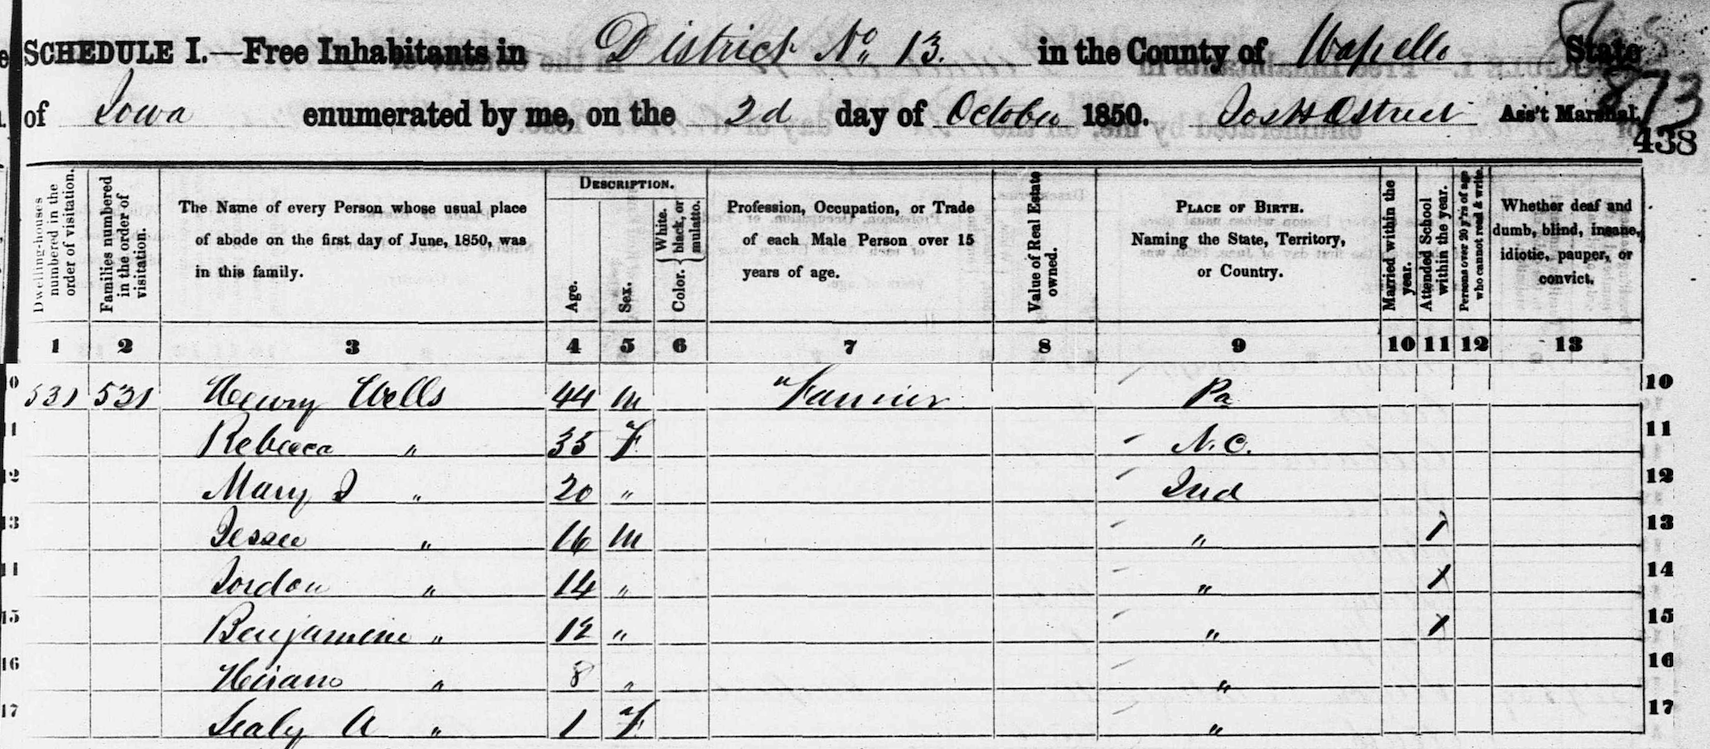 SCHEDULE I.—Free Inhabitants in District No. 13. in the County of Wapello State
873
of Iowa enumerated by me, on the 2d day of October 1850. Jos H Ass't Marshal.
438
DESCRIPTION.
Dwelling-houses numbered in the order of visitation.
Families numbered in the order of visitation.
The Name of every Person whose usual place of abode on the first day of June, 1850, was in this family.
Age.
Sex.
Color. { White, black, or mulatto.
Profession, Occupation, or Trade of each Male Person over 15 years of age.
Value of Real Estate owned.
PLACE OF BIRTH. Naming the State, Territory, or Country.
Married within the year.
Attended School within the year.
Persons over 20 y'rs of age who cannot read & write.
Whether deaf and dumb, blind, insane, idiotic, pauper, or convict.
1 2 3 4 5 6 7 8 9 10 11 12 13
10 531 531 Henry Wells 44 M Farmer Pa 10
11 Rebecca " 35 F N.C. 11
12 Mary J " 20 " Ind 12
13 Jessee " 16 M " / 13
14 Jordon " 14 " " / 14
15 Benjamine " 12 " " / 15
16 Hiram " 8 " " 16
17 A " 1 F " 17